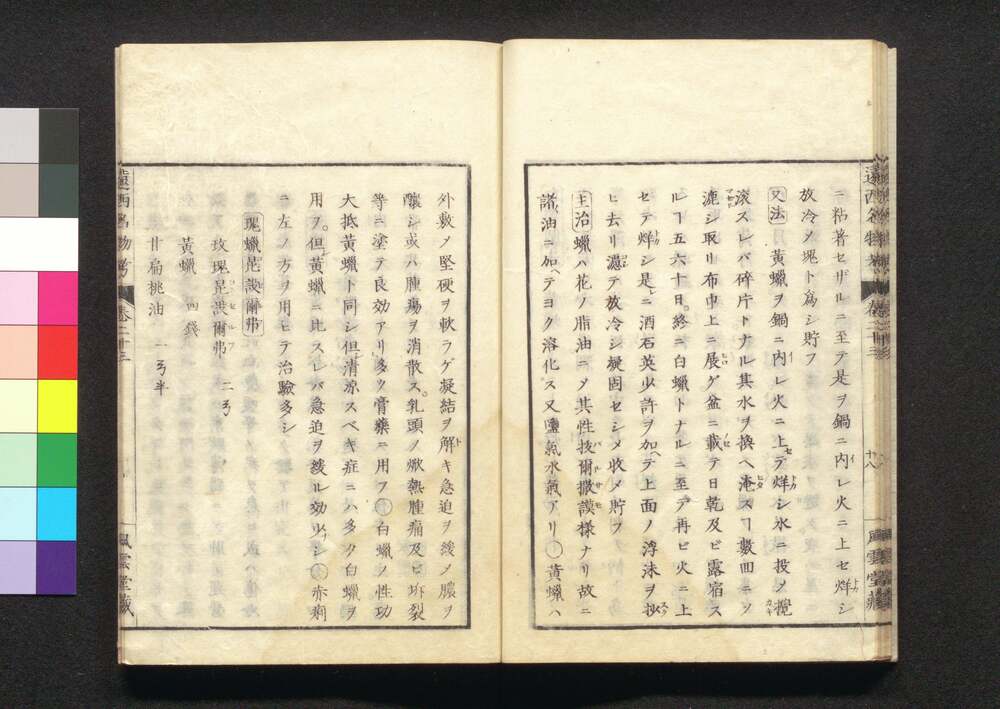 ニ粘著セザルニ至テ是ヲ鍋ニ内レ火ニ上セ烊シ
放冷メ塊ト爲シ貯フ
又法 黃蠟ヲ鍋ニ内レ火ニ上テ烊シ氷ニ投メ攪
滾スレバ碎片トナル其水ヲ換ヘ淹スヿ數回ニソ
漉シ取リ布巾上ニ展ゲ盆ニ載テ日乾及ビ露宿ス
ルヿ五六十日。終ニ白蠟トナルニ至テ再ビ火ニ上
セテ烊シ是ニ酒石英少許ヲ加ヘテ上面ノ浮沫ヲ抄
ヒ去リ濾テ放冷シ凝固セシメ收メ貯フ
主治 蠟ハ花ノ脂油ニメ其性拔爾撒謨樣ナリ故ニ
諸油ニ加ヘテヨク溶化ス又鹽氣水氣アリ○黃蠟ハ
十八
風雲堂藏
外敷メ堅硬ヲ軟ラゲ凝結ヲ解キ急迫ヲ緩メ膿ヲ
釀シ或ハ腫瘍ヲ消散ス。乳頭ノ焮熱腫痛及ビ坼裂
等ニ塗テ良効アリ多ク膏藥ニ用フ○白蠟ノ性功
大抵黃蠟ト同シ但淸凉スベキ症ニハ多ク白蠟ヲ
用フ。但黃蠟ニ比スレバ急迫ヲ緩ル効少ナシ○赤痢
ニ左ノ方ヲ用ヒテ治驗多シ
玫瑰昆設爾弗 二ヶ
黃蠟 四錢
甘扁桃油 一ヶ半
遠西名物考
卷二十三
風雲堂藏